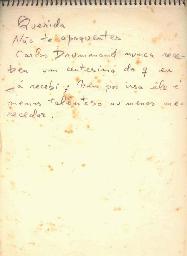 Querida
Não te apoquentes
Carlos Drummond nunca rece-
beu um centesimo do q eu
já recebi. Nem por isso êle é
menos talentoso ou menos me-
recedor.